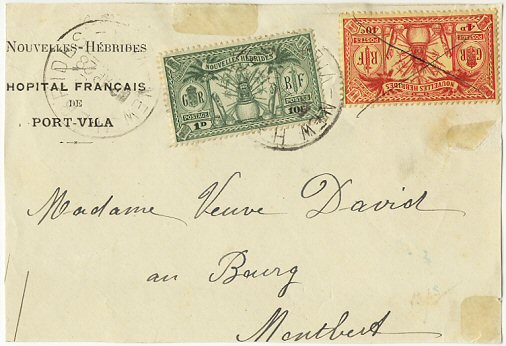 NOUVELLES-HÉBRIDES
HOPITAL FRANÇAIS
DE
PORT-VILA
NOUVELLES HÉBRIDES
G R
R F
POSTAGE
POSTES
1D
10c
NOUVELLES HÉBRIDES
G R
R F
Madame Veuve David
au Bourg
Montbert